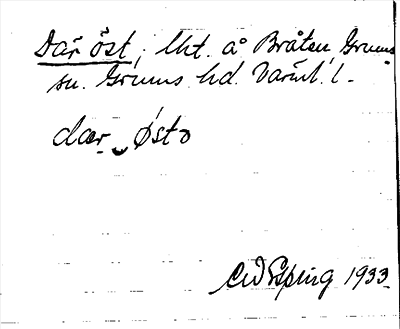 Där öst, lht. å Bråten, Grums
sn. Grums hd. Värml. l.
dær ‿ østə
Espling 1933